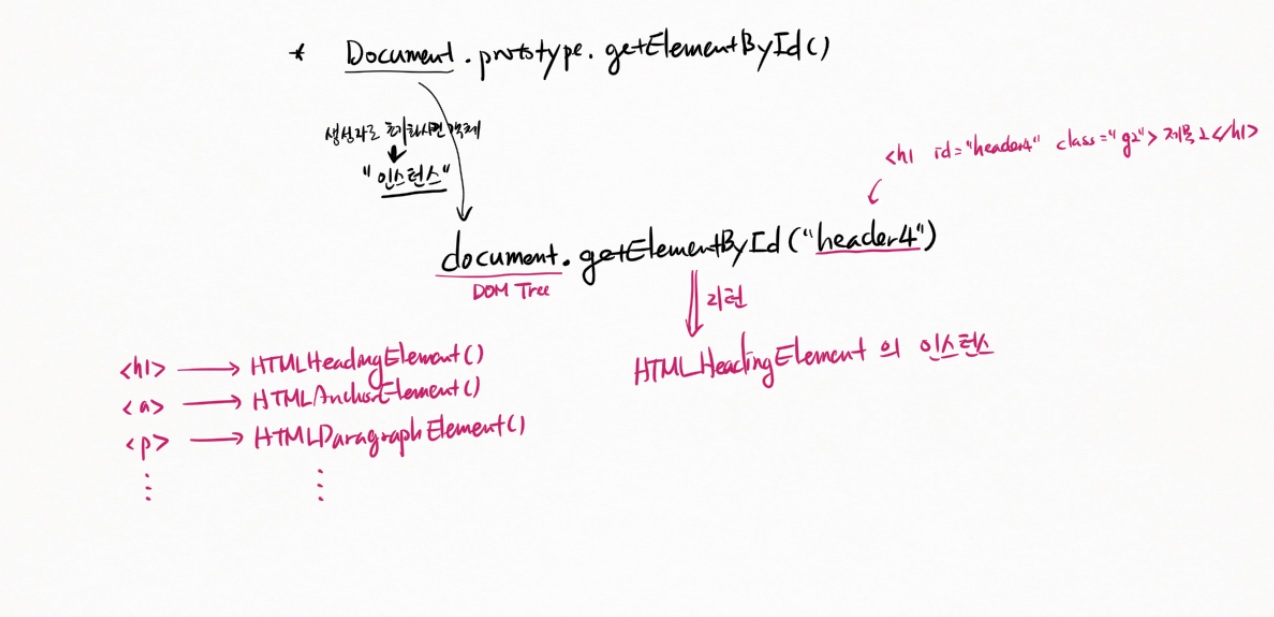 * Document.prototype.getElementById()
생성자로 초기화시킨 객체
"인스턴스"
<h1 id="header4" class="g2">제목1</h1>
document.getElementById("header4")
DOM Tree
리턴
HTMLHeadingElement 의 인스턴스
<h1> → HTMLHeadingElement()
<a> → HTMLAnchorElement()
<p> → HTMLParagraphElement()
⋮ ⋮